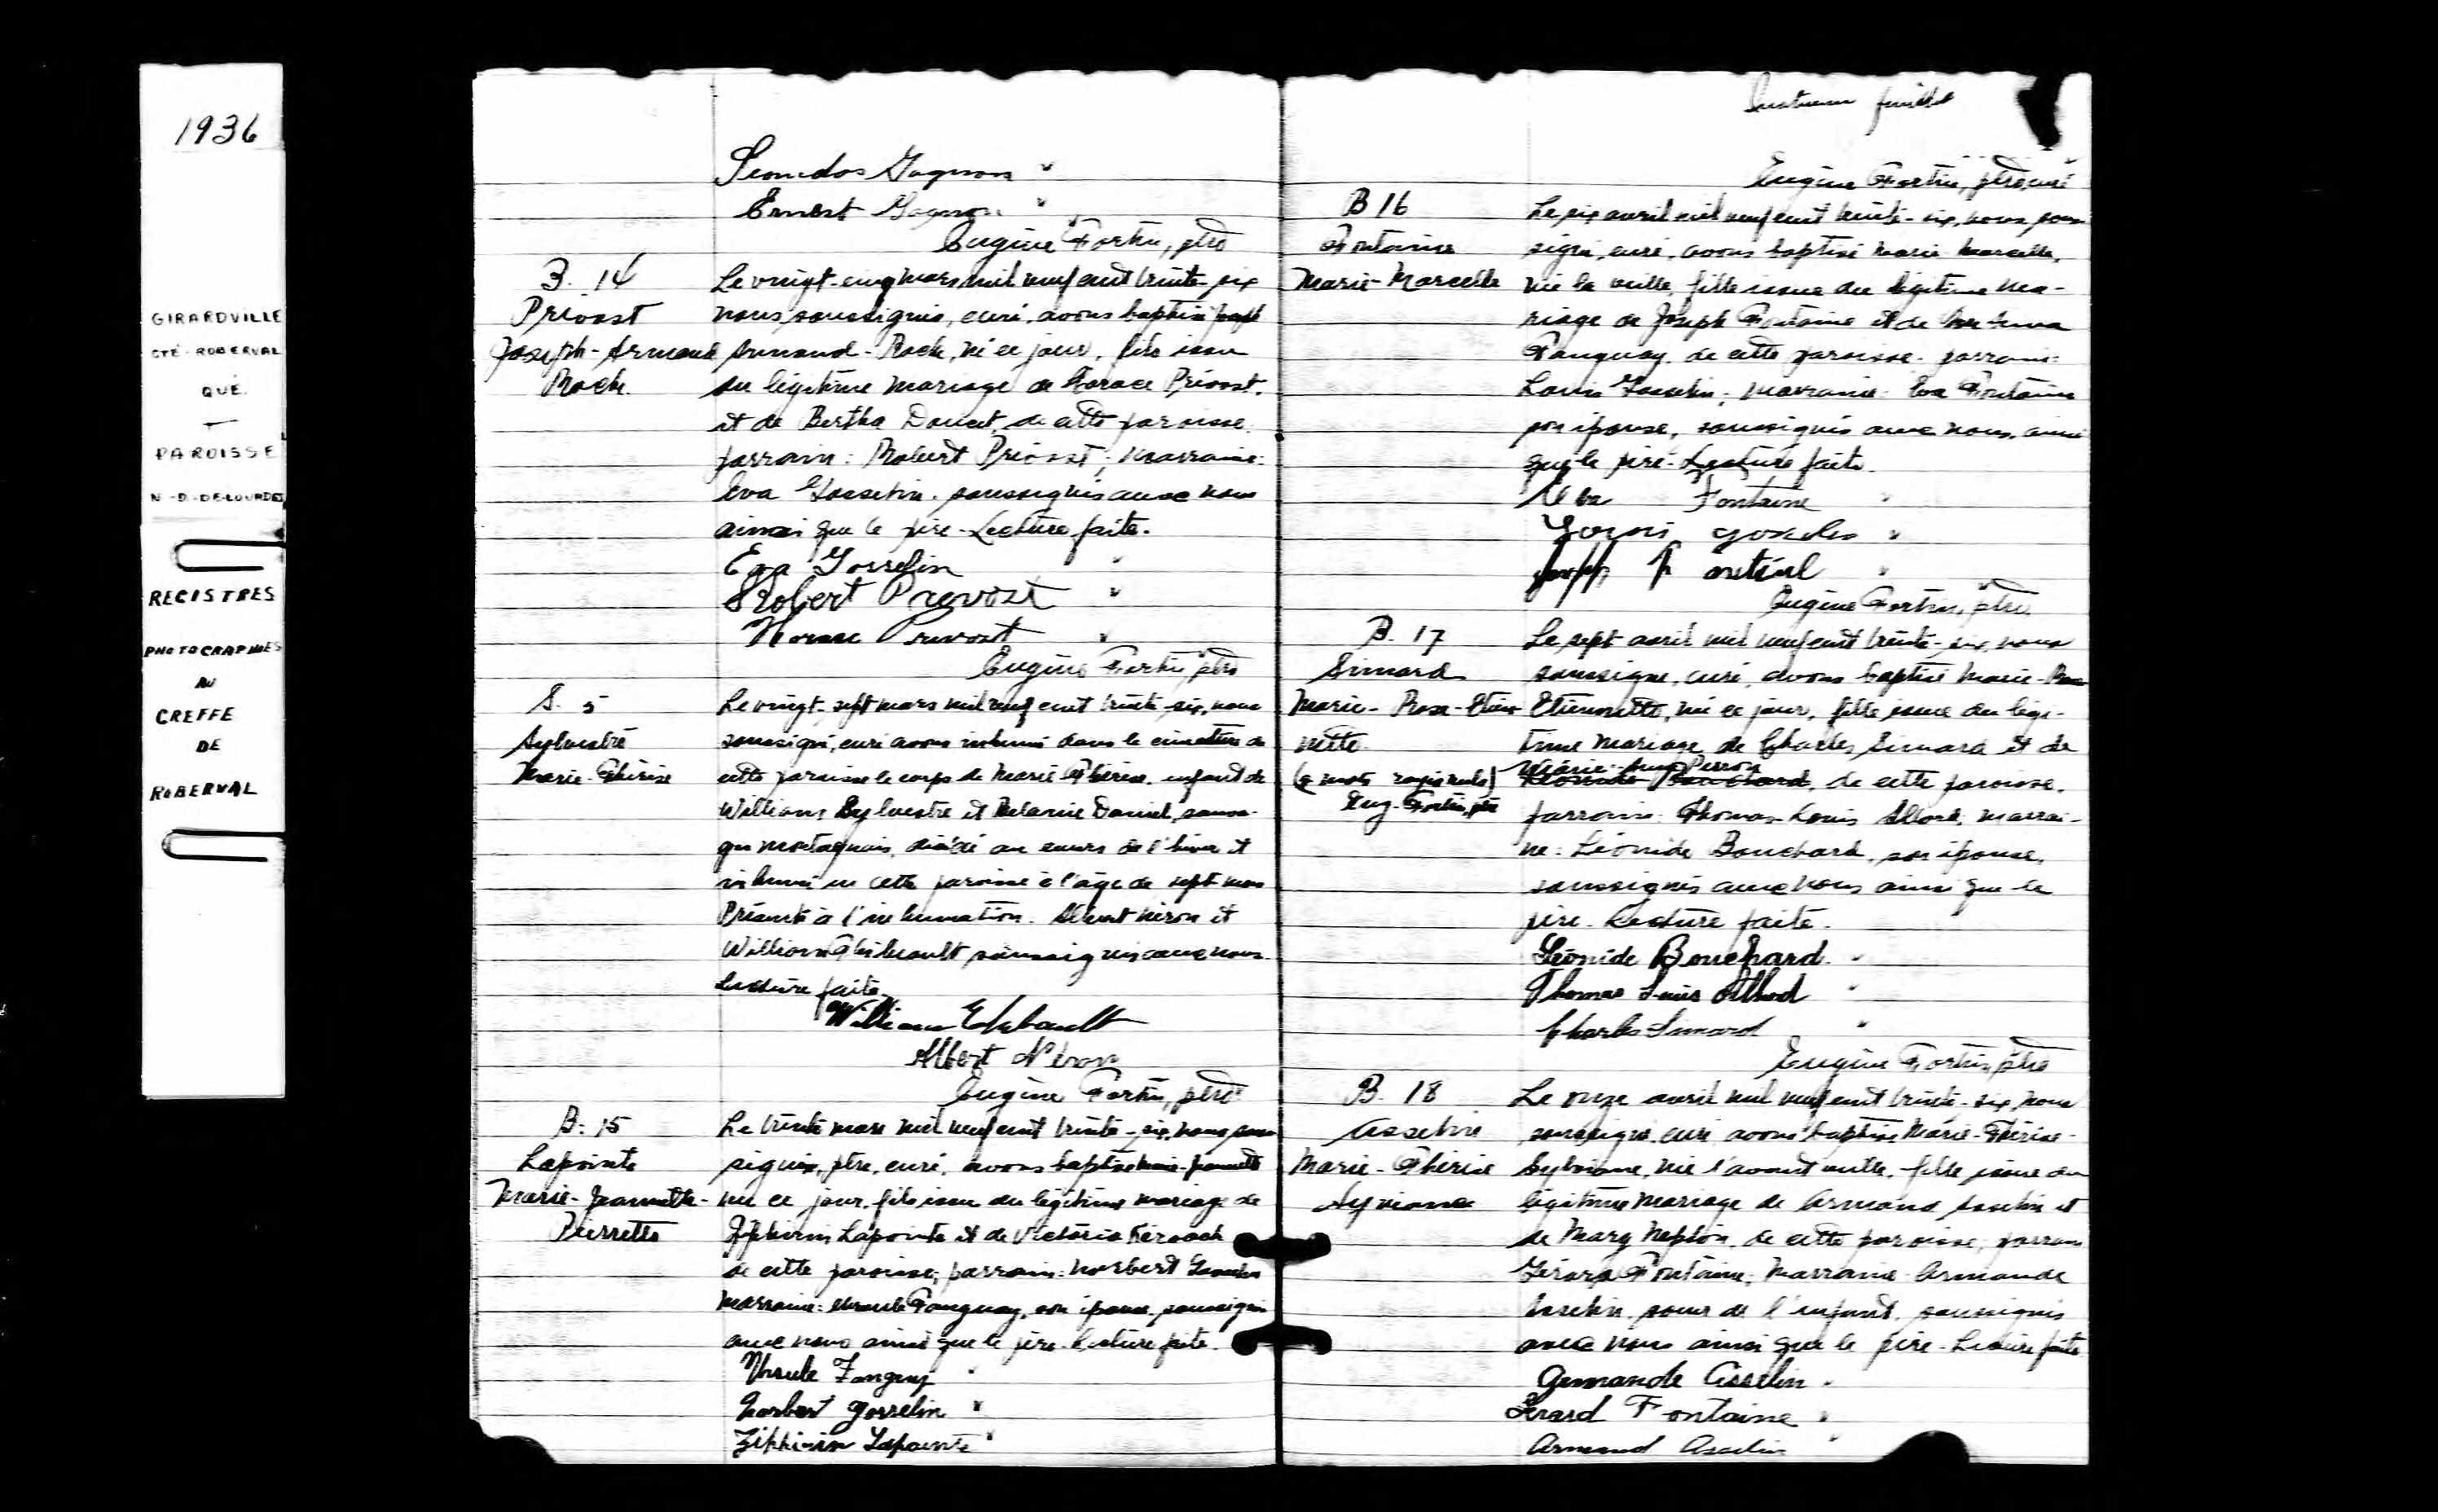 1936
GIRARDVILLE
CTÉ - ROBERVAL
QUÉ.
PAROISSE
N.-D.-DE-LOURDES
REGISTRES
PHOTOGRAPHIÉS
AU
GREFFE
DE
ROBERVAL
Gagnon "
Ernest Gagnon "
Eugène Fortin, ptre
B. 14
Prévost
Joseph-Armand
Roch.
Le vingt-cinq mars mil neuf cent trente-six
nous soussignés, curé, avons baptisé
Armand-Roch, né ce jour, fils issu
du légitime mariage de Horace Prévost.
et de Bertha Doucet, de cette paroisse.
parrain: Robert Prévost; marraine:
Eva Gosselin. soussignés avec nous
ainsi que le père - Lecture faite.
Eva Gosselin "
Robert Prevost "
Horace Prevost "
Eugène Fortin, ptre
S. 5
Sylvestre
Marie-Thérèse
Le vingt-sept mars mil neuf cent trente-six, nous
soussigné, curé avons inhumé dans le cimetière de
cette paroisse le corps de Marie-Thérèse, enfant de
William Sylvestre et Mélanie Daniel, sauva-
ges montagnais, décédé au cours de l'hiver et
inhumé en cette paroisse à l'âge de sept mois
Présents à l'inhumation. Albert Néron et
William Thibeault soussignés avec nous.
Lecture faite.
William
Albert Néron
Eugène Fortin, ptre
B. 15
Lapointe
Marie-Jeannette-
Pierrette
Le trente mars mil neuf cent trente-six, nous sous
signés, ptre, curé, avons baptisé Marie-Jeannette
né ce jour, fils issu du légitime mariage de
Zéphirin Lapointe et de Victoria
de cette paroisse; parrain: Norbert Gosselin
marraine: Ursule Tanguay, son épouse, soussignés
avec nous ainsi que le père - Lecture faite.
Ursule Tanguay "
Norbert Gosselin "
Zéphirin Lapointe "
feuillet
Eugène Fortin, ptre curé
B 16
Fontaine
Marie-Marcelle
Le six avril mil neuf cent trente-six, nous sous
signé, curé, avons baptisé Marie-Marcelle,
née la veille, fille issue du légitime ma-
riage de Joseph Fontaine et de
Tanguay, de cette paroisse. parrain:
Louis Gosselin; marraine: Eva Fontaine
son épouse, soussignés avec nous, ainsi
que le père - Lecture faite.
Fontaine "
Eugène Fortin, ptre
B. 17
Simard
Marie-Rose-Etien-
nette
(2 mots rayés nuls)
Eug. Fortin, ptre
Le sept avril mil neuf cent trente-six, nous
soussigné, curé, avons baptisé Marie-Rose
Etiennette, née ce jour, fille issue du légi-
time mariage de Charles Simard et de
Perron
Léonide Bouchard, de cette paroisse.
parrain: Thomas-Louis Allard; marrai-
ne: Léonide Bouchard, son épouse,
soussignés avec nous ainsi que le
père. Lecture faite.
Léonide Bouchard "
Thomas Louis Allard "
Charles Simard "
Eugène Fortin, ptre
B. 18
Asselin
Marie-Thérèse
Sylviane
Le onze avril mil neuf cent trente-six, nous
soussigné, curé avons baptisé Marie-Thérèse-
Sylviane, née l'avant veille, fille issue du
légitime mariage de Armand Asselin et
de Mary Nepton, de cette paroisse, parrain
Gérard Fontaine; marraine Armande
Asselin, soeur de l'enfant, soussignés
avec nous ainsi que le père - Lecture faite
Armande Asselin "
Gérard Fontaine "
Armand Asselin "